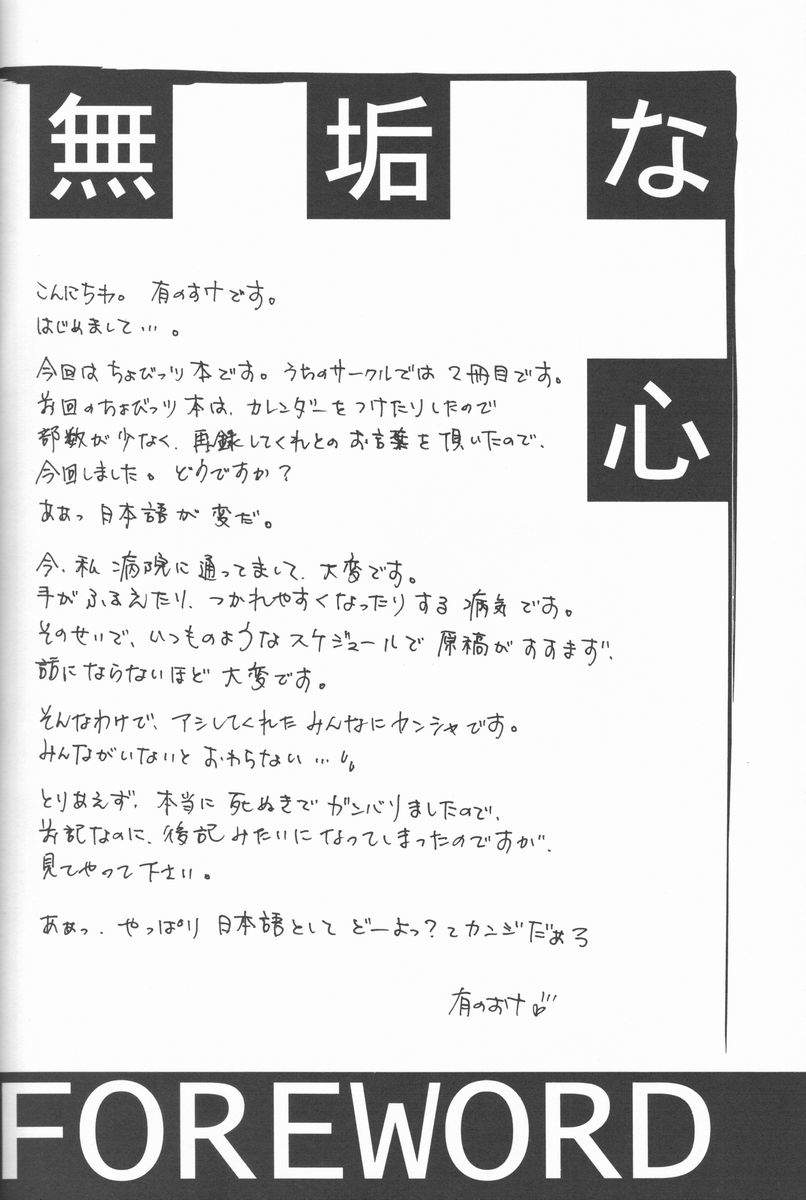 無垢な
心
こんにちわ。有のすけです。
はじめまして…。
今回はちょびっツ本です。うちのサークルでは2冊目です。
前回のちょびっツ本は、カレンダーをつけたりしたので
部数が少なく、再録してくれとのお言葉を頂いたので、
今回しました。どうですか?
ああっ日本語が変だ。
今、私病院に通ってまして、大変です。
手がふるえたり、つかれやすくなったりする病気です。
そのせいで、いつものようなスケジュールで原稿がすすまず、
話にならないほど大変です。
そんなわけで、アシしてくれたみんなにカンシャです。
みんながいないとおわらない…
とりあえず、本当に死ぬきでガンバリましたので、
前記なのに、後記みたいになってしまったのですが、
見てやって下さい。
あぁっ、やっぱり日本語としてどーよっ?てカンジだぁろ
有のすけ
FOREWORD